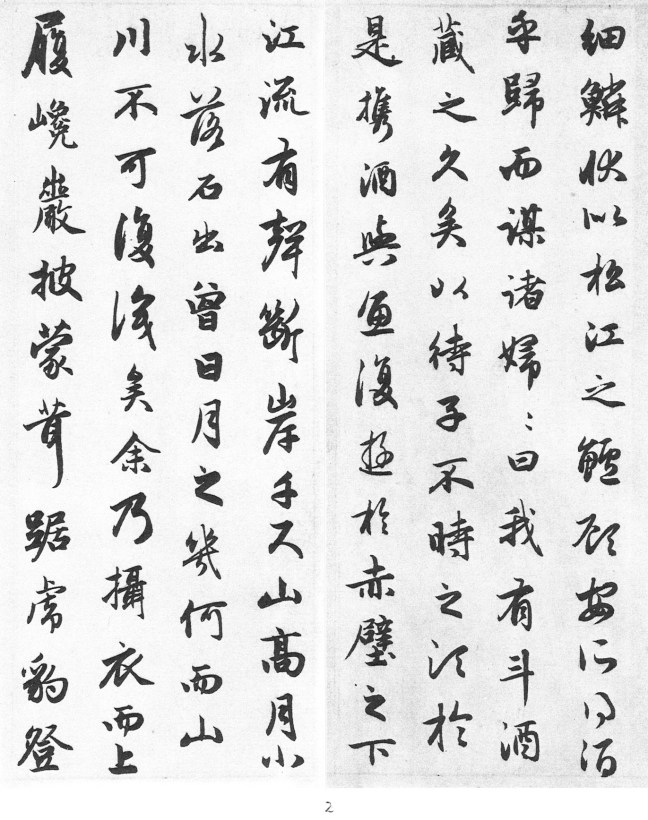 細鱗狀似松江之鱸顧安所得酒
乎歸而謀諸婦〻曰我有斗酒
藏之久矣以待子不時之須於
是携酒與魚復遊於赤壁之下
江流有聲斷岸千尺山高月小
水落石出曾日月之幾何而山
川不可復識矣余乃攝衣而上
履巉巖披蒙茸踞虎豹登
2